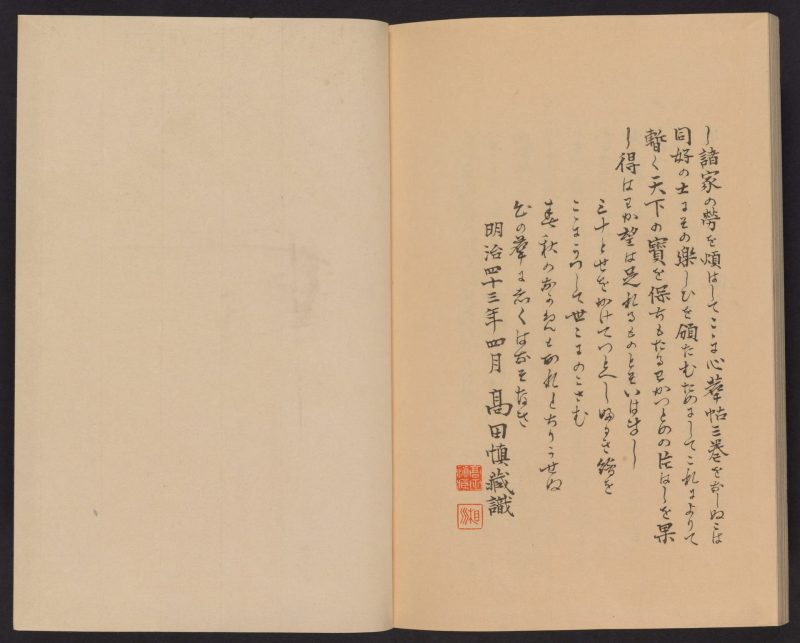 し諸家の勞を煩はしてここに心華帖三卷をなしぬこは
同好の士にその樂しひを頒たむためにしてこれによりて
暫く天下の寶を保ちもたるわかつとめの片はしを果
し得はわか望は足れるものとそいはまし
三十とせをかけてつとへし ふるき繪を
ここにうつして世にのこさむ
春秋のなかめも あれとちりうせぬ
この華にしくはなきかな
明治四十三年四月 高田慎藏識